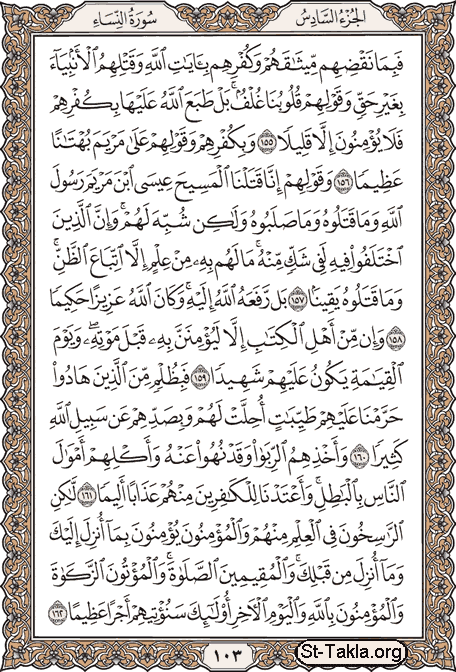 الجزء السادس
سورة النساء
فَبِمَا نَقْضِهِم مِّيثَٰقَهُمْ وَكُفْرِهِم بِـَٔايَٰتِ ٱللَّهِ وَقَتْلِهِمُ ٱلْأَنۢبِيَآءَ
بِغَيْرِ حَقٍّ وَقَوْلِهِمْ قُلُوبُنَا غُلْفٌۢ ۚ بَلْ طَبَعَ ٱللَّهُ عَلَيْهَا بِكُفْرِهِمْ
فَلَا يُؤْمِنُونَ إِلَّا قَلِيلًا ١٥٥ وَبِكُفْرِهِمْ وَقَوْلِهِمْ عَلَىٰ مَرْيَمَ بُهْتَٰنًا
عَظِيمًا ١٥٦ وَقَوْلِهِمْ إِنَّا قَتَلْنَا ٱلْمَسِيحَ عِيسَى ٱبْنَ مَرْيَمَ رَسُولَ
ٱللَّهِ وَمَا قَتَلُوهُ وَمَا صَلَبُوهُ وَلَٰكِن شُبِّهَ لَهُمْ ۚ وَإِنَّ ٱلَّذِينَ
ٱخْتَلَفُوا۟ فِيهِ لَفِى شَكٍّ مِّنْهُ ۚ مَا لَهُم بِهِۦ مِنْ عِلْمٍ إِلَّا ٱتِّبَاعَ ٱلظَّنِّ ۚ
وَمَا قَتَلُوهُ يَقِينًۢا ١٥٧ بَل رَّفَعَهُ ٱللَّهُ إِلَيْهِ ۚ وَكَانَ ٱللَّهُ عَزِيزًا حَكِيمًا
١٥٨ وَإِن مِّنْ أَهْلِ ٱلْكِتَٰبِ إِلَّا لَيُؤْمِنَنَّ بِهِۦ قَبْلَ مَوْتِهِۦ ۖ وَيَوْمَ
ٱلْقِيَٰمَةِ يَكُونُ عَلَيْهِمْ شَهِيدًا ١٥٩ فَبِظُلْمٍ مِّنَ ٱلَّذِينَ هَادُوا۟
حَرَّمْنَا عَلَيْهِمْ طَيِّبَٰتٍ أُحِلَّتْ لَهُمْ وَبِصَدِّهِمْ عَن سَبِيلِ ٱللَّهِ
كَثِيرًا ١٦٠ وَأَخْذِهِمُ ٱلرِّبَوٰا۟ وَقَدْ نُهُوا۟ عَنْهُ وَأَكْلِهِمْ أَمْوَٰلَ
ٱلنَّاسِ بِٱلْبَٰطِلِ ۚ وَأَعْتَدْنَا لِلْكَٰفِرِينَ مِنْهُمْ عَذَابًا أَلِيمًا ١٦١ لَّٰكِنِ
ٱلرَّٰسِخُونَ فِى ٱلْعِلْمِ مِنْهُمْ وَٱلْمُؤْمِنُونَ يُؤْمِنُونَ بِمَآ أُنزِلَ إِلَيْكَ
وَمَآ أُنزِلَ مِن قَبْلِكَ ۚ وَٱلْمُقِيمِينَ ٱلصَّلَوٰةَ ۚ وَٱلْمُؤْتُونَ ٱلزَّكَوٰةَ
وَٱلْمُؤْمِنُونَ بِٱللَّهِ وَٱلْيَوْمِ ٱلْـَٔاخِرِ أُو۟لَٰٓئِكَ سَنُؤْتِيهِمْ أَجْرًا عَظِيمًا ١٦٢
١٠٣
St-Takla.org